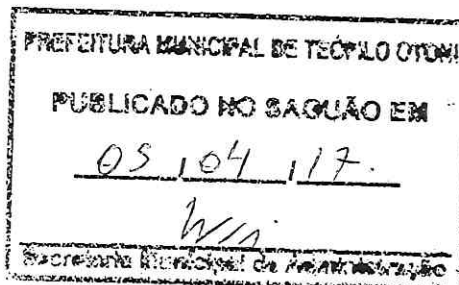 PREFEITURA MUNICIPAL DE TEÓFILO OTONI
PUBLICADO NO SAGUÃO EM
05 / 04 / 17.
Secretaria Municipal de Administração